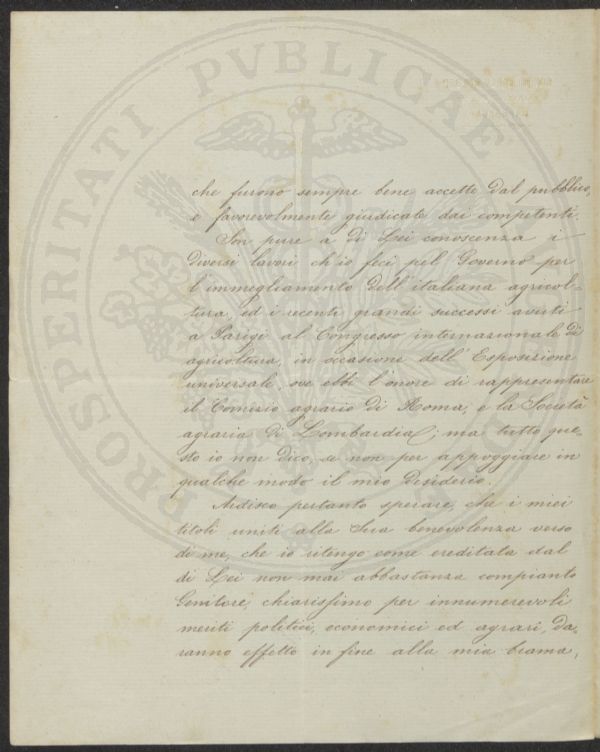 PROSPERITATI PVBLICAE
che furono sempre bene accette dal pubblico,
e favorevolmente giudicate dai competenti.
Son pure a di Lei conoscenza i
diversi lavori ch'io feci pel Governo per
l'immegliamento dell'italiana agricol-
tura, ed i recenti grandi successi avuti
a Parigi al Congresso internazionale di
agricoltura, in occasione dell'Esposizione
universale ove ebbi l'onore di rappresentare
il Comizio agrario di Roma, e la Società
agraria di Lombardia; ma tutto que-
sto io non dico, se non per appoggiare in
qualche modo il mio desiderio.
Ardisco pertanto sperare, che i miei
titoli uniti alla Sua benevolenza verso
di me, che io ritengo come ereditata dal
di Lei non mai abbastanza compianto
Genitore, chiarissimo per innumerevoli
meriti politici, economici ed agrari, da-
ranno effetto in fine alla mia brama,